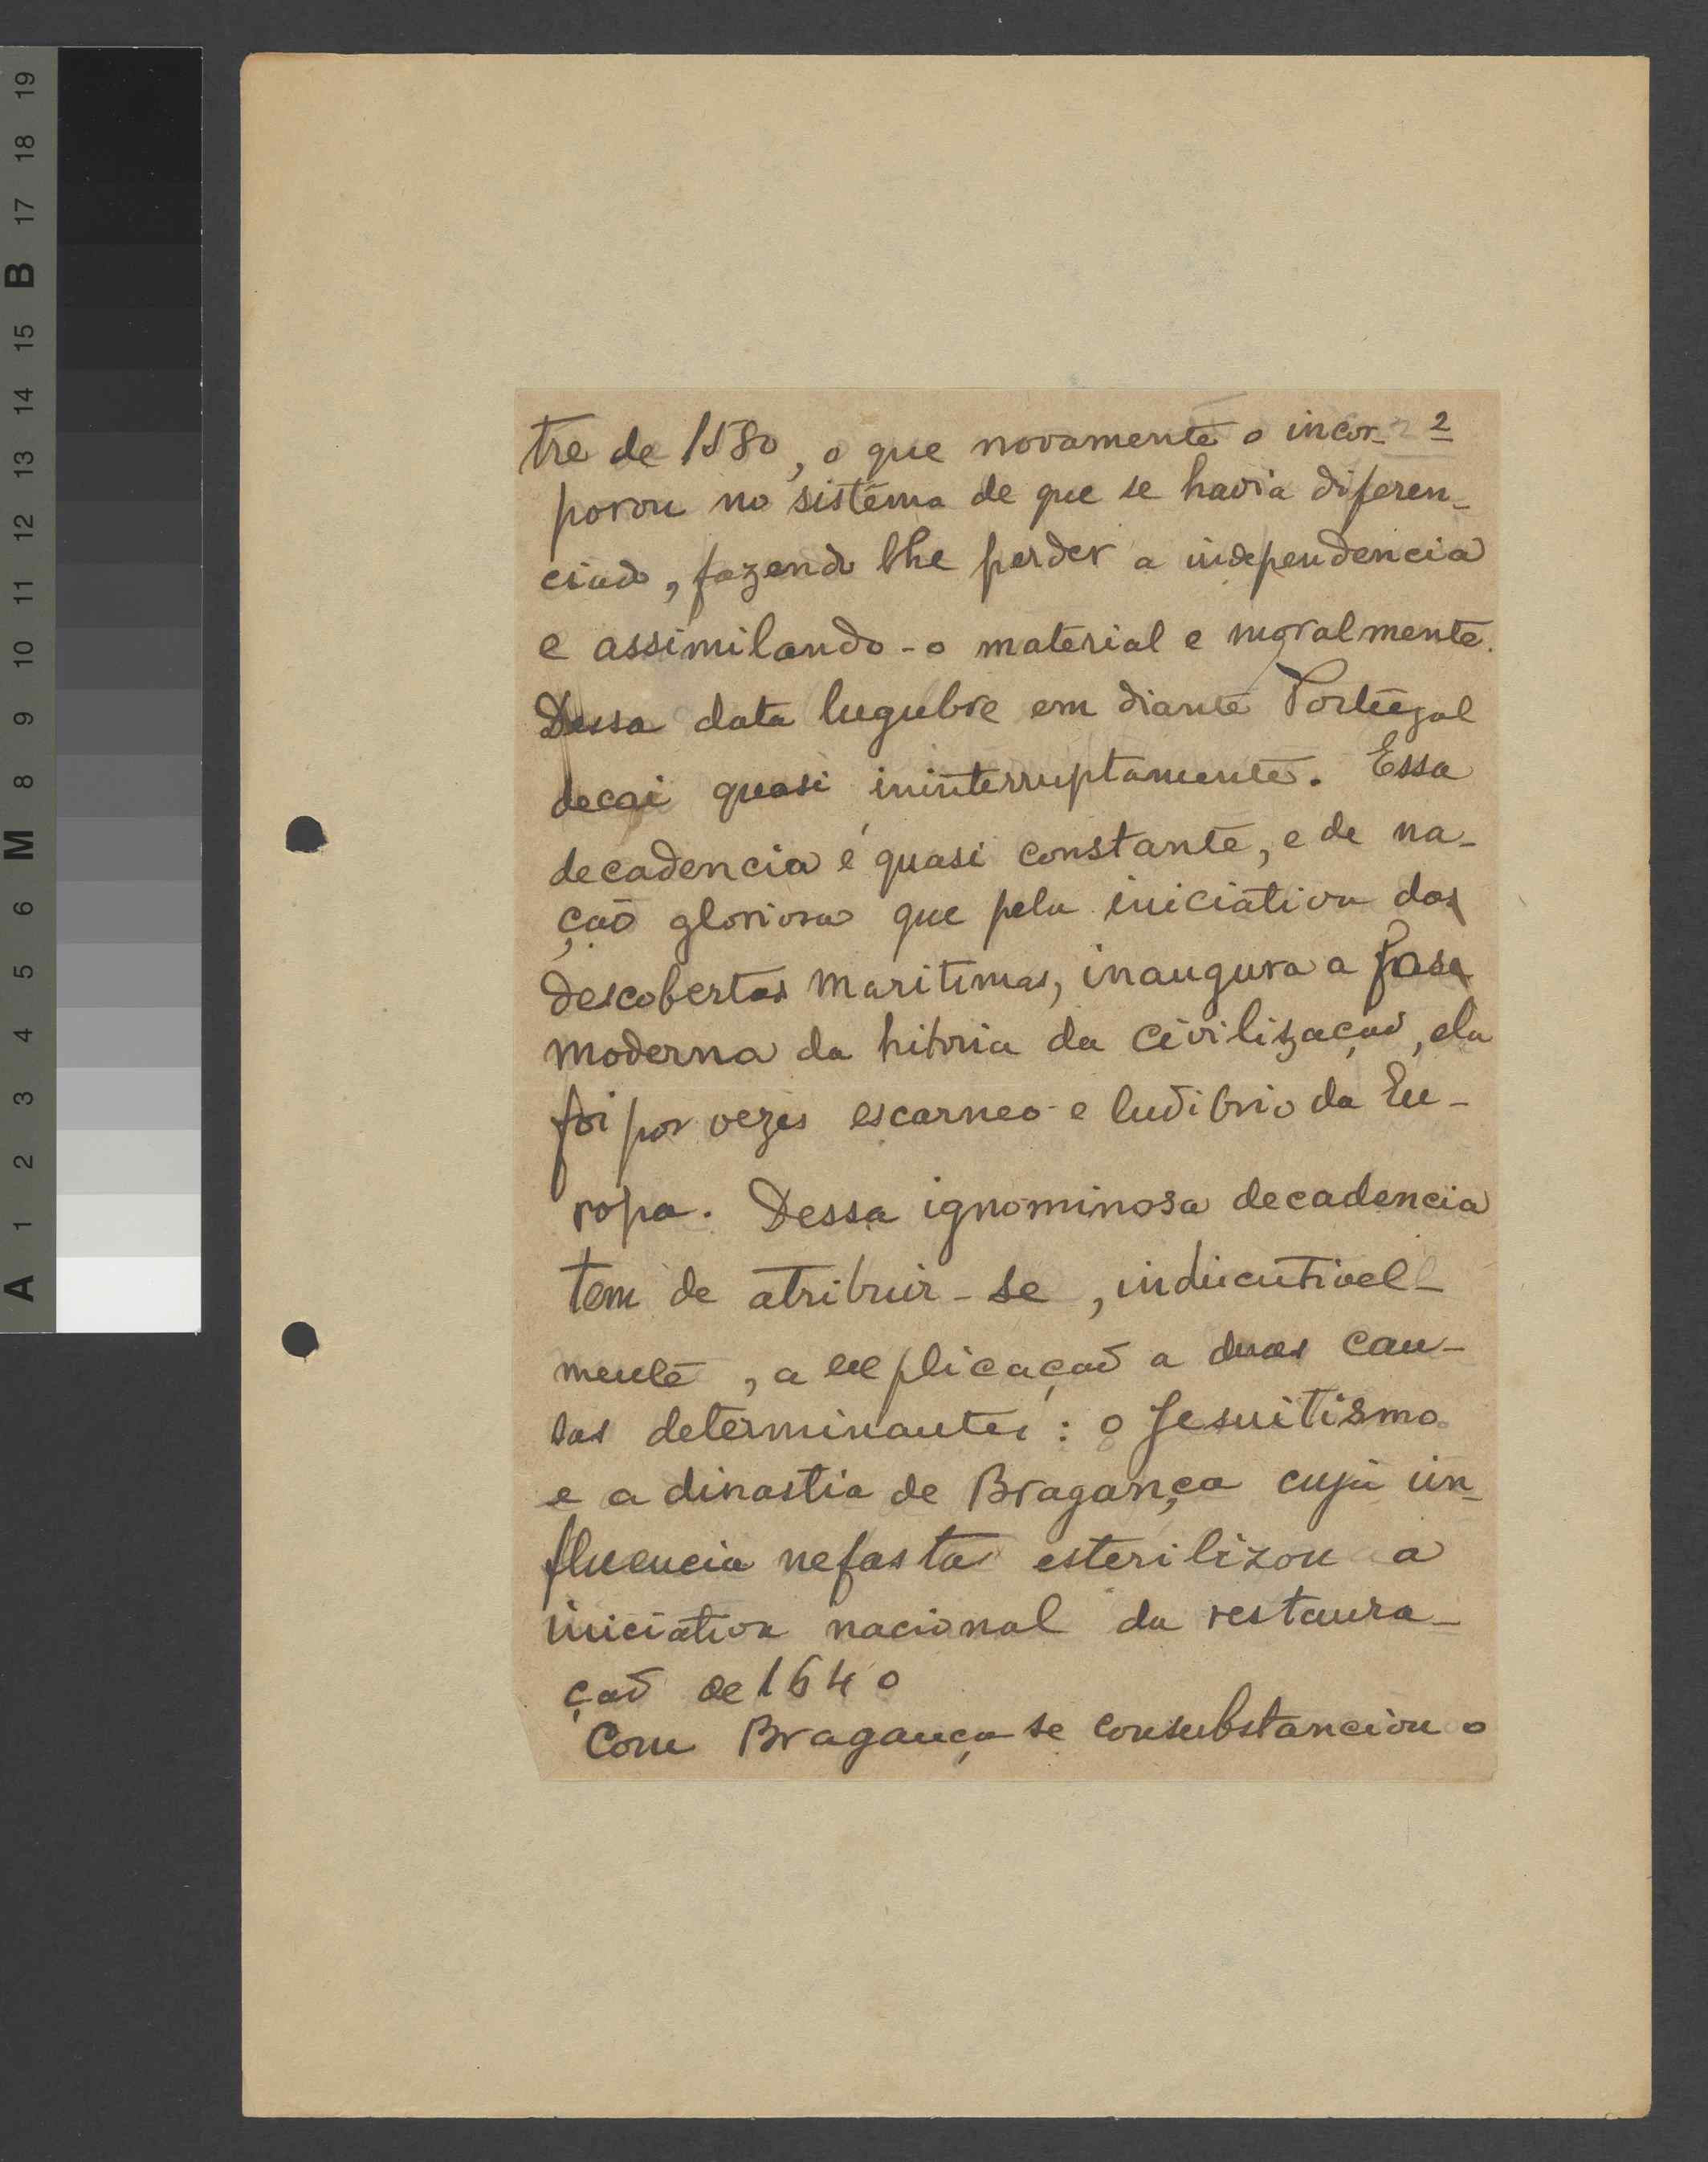 tre de 1580, o que novamente o incor- 2
porou no sistema de que se havia diferen-
ciado, fazendo lhe perder a independencia
e assimilando-o material e moralmente.
Dessa data lugubre em diante Portugal
decai quasi ininterruptamente. Essa
decadencia é quasi constante, e de na-
ção gloriosa que pela iniciativa das
descobertas maritimas, inaugura a fase
moderna da historia da civilização, ela
foi por vezes escarneo e ludibrio da Eu-
ropa. Dessa ignominosa decadencia
tem de atribuir-se, indiscutivel-
mente, a explicação a duas cau-
sas determinantes: o Jesuitismo
e a dinastia de Bragança cuja in-
fluencia nefasta esterilizou a
iniciativa nacional da restaura-
ção de 1640
Com Bragança se consubstanciou o
A 1 2 3 4 5 6 M 8 9 10 11 12 13 14 15 B 17 18 19